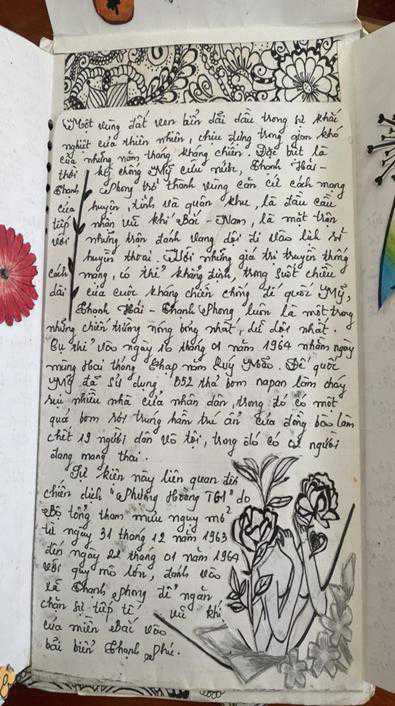 Một vùng đất ven biển dãi dầu trong sự khắc
nghiệt của thiên nhiên, chịu đựng trong gian khổ
của những năm tháng kháng chiến. Đặc biệt là
thời kỳ chống Mỹ cứu nước, Thạnh Hải -
Thạnh Phong trở thành vùng căn cứ cách mạng
của huyện, tỉnh và quân khu, là đầu cầu
tiếp nhận vũ khí Bắc - Nam, là một trận
với những trận đánh vang dội đi vào lịch sử
huyền thoại. Với những giá trị truyền thống
cách mạng, có thể khẳng định, trong suốt chiều
dài của cuộc kháng chiến chống đế quốc Mỹ,
Thạnh Hải - Thạnh Phong luôn là một trong
những chiến trường nóng bỏng nhất, dữ dội nhất.
Cụ thể vào ngày 16 tháng 01 năm 1964 nhằm ngày
mùng Hai tháng Chạp năm Quý Mão. Đế quốc
Mỹ đã sử dụng B52 thả bom napan làm cháy
rụi nhiều nhà của nhân dân, trong đó có một
quả bom rơi trúng hầm trú ẩn của đồng bào làm
chết 19 người dân vô tội, trong đó có cả người
đang mang thai.
Sự kiện này liên quan đến
chiến dịch "Phượng Hoàng TG1" do
Bộ tổng tham mưu ngụy mở
từ ngày 31 tháng 12 năm 1963
đến ngày 22 tháng 01 năm 1964
với quy mô lớn, đánh vào
xã Thạnh Phong để ngăn
chặn sự tiếp tế vũ khí
của miền Bắc vào
bãi biển Thạnh Phú.